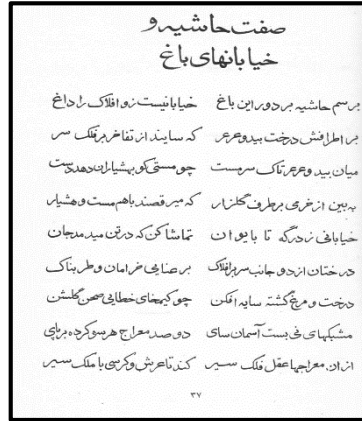 صفت حاشیه و
خیابانهای باغ
برسم حاشیه بر دور این باغ خیابانیست زو افلاک را داغ
بر اطرافش درخت بید و عرعر که سایند از تفاخر بر فلک سر
میان بید و عرعر تاک سرمست چو مستی کو بهشیاران دهد دست
به بین از خرمی بر طرف گلزار که میرقصند باهم مست و هشیار
خیابانی ز درگه تا بایوان تماشا کن که در تن میدمد جان
درختان از دو جانب سر بر افلاک برعنایی خرامان و طربناک
درخت و مرغ گشته سایه افکن چو کیمخای خطایی صحن گلشن
مشبکهای نی بست آسمان سای دو صد معراج هر سو کرده برپای
از ان معراجها عقل فلک سیر کند تا عرش و کرسی با ملک سیر
۳۷